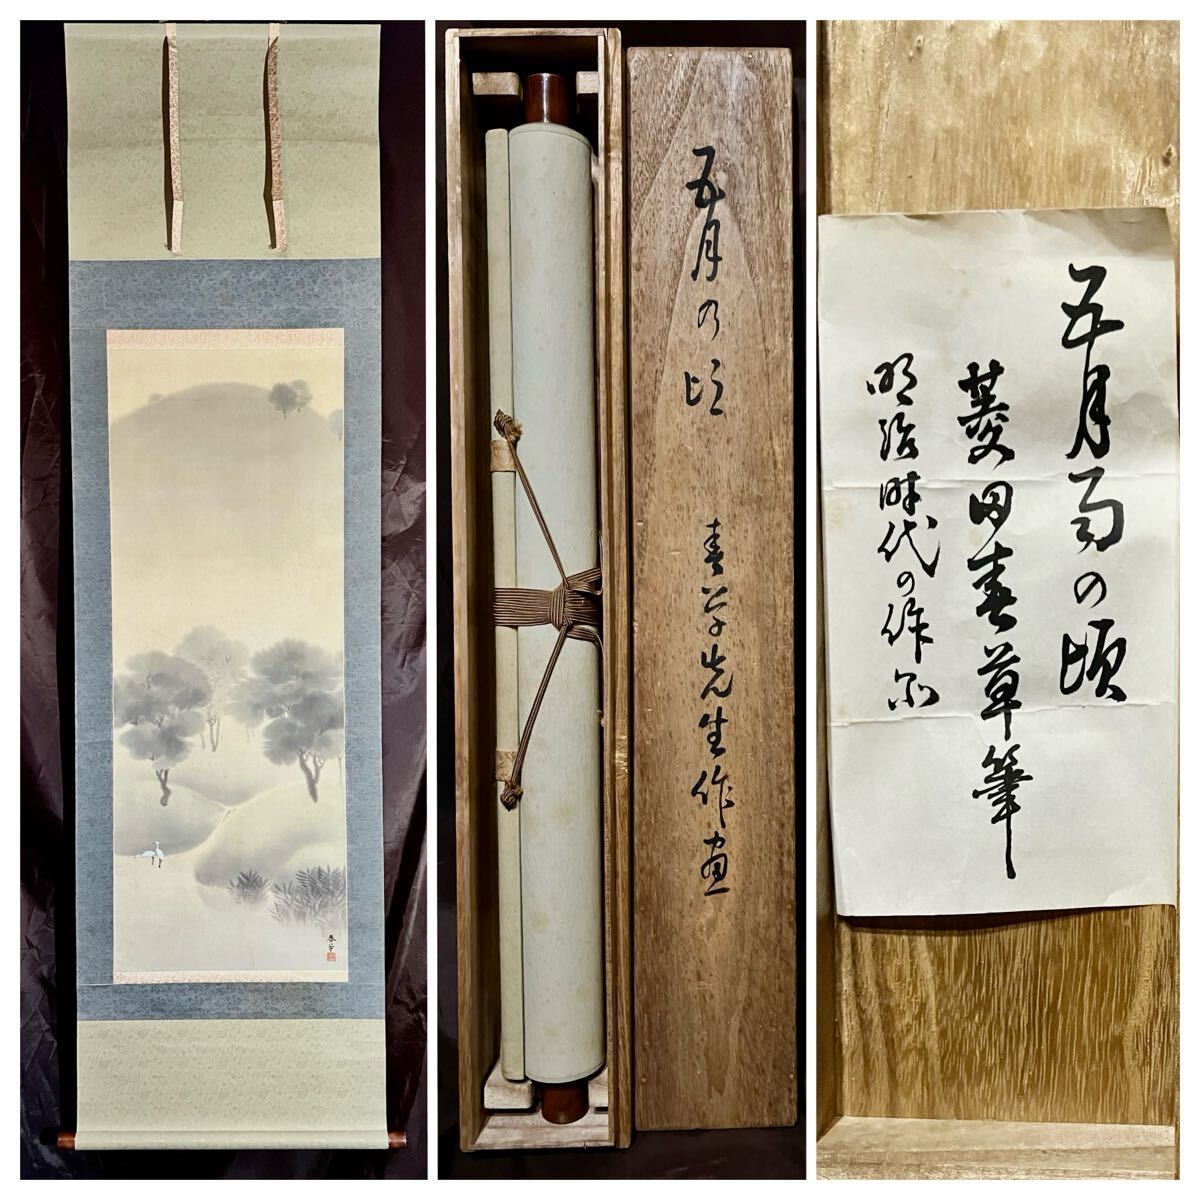 春草
五月の頃
春草先生作画
五月雨の頃
菱田春草筆
明治時代の作品